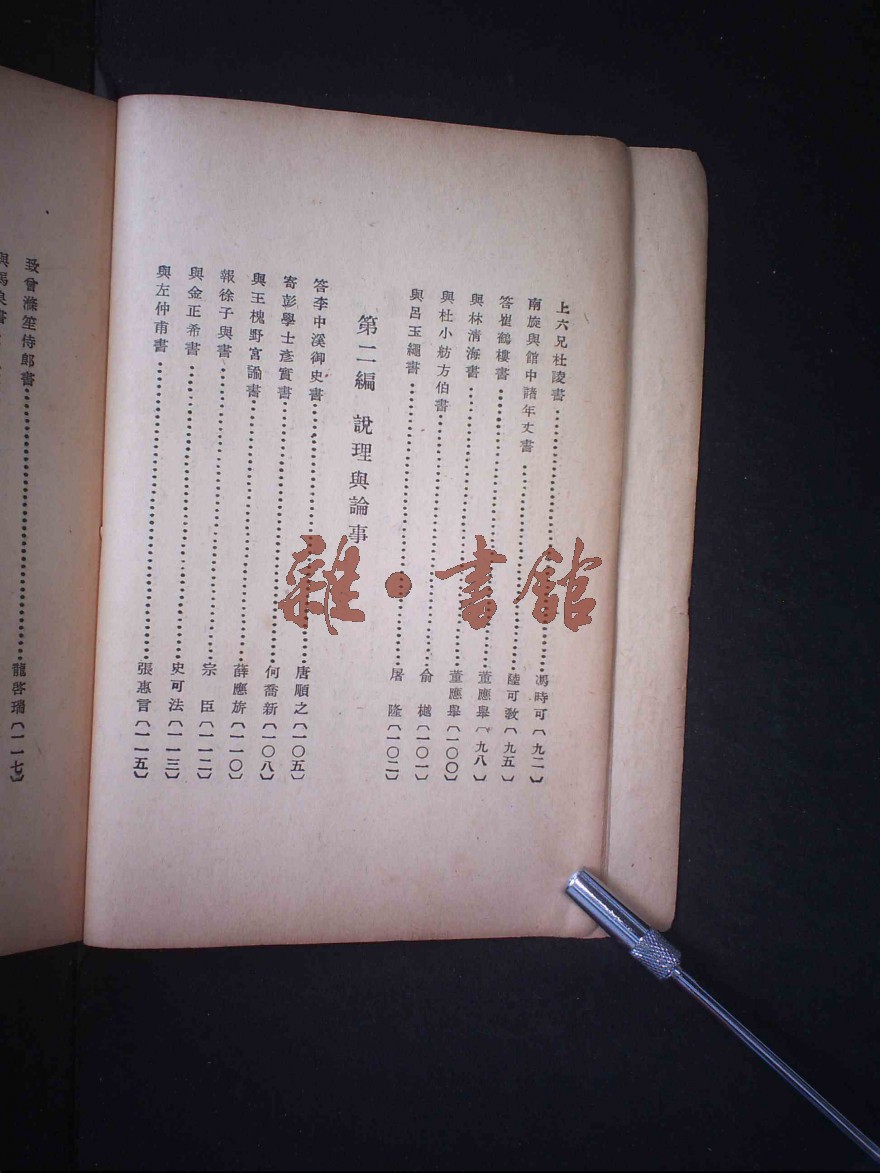 上六兄杜陵書 馮時可〔九二〕
南旋與館中諸年丈書 陸可敎〔九五〕
答崔鶴樓書 董應舉〔九八〕
與林淸海書 董應舉〔一〇〇〕
與杜小舫方伯書 俞樾〔一〇一〕
與呂玉繩書 屠隆〔一〇二〕
第二編 說理與論事
答李中溪御史書 唐順之〔一〇五〕
寄彭學士彥實書 何喬新〔一〇八〕
與王槐野宮諭書 薛應旂〔一一〇〕
報徐子與書 宗臣〔一一二〕
與金正希書 史可法〔一一三〕
與左仲甫書 張惠言〔一一五〕
致曾滌笙侍郎書 龍啓瑞〔一一七〕
雜·書館